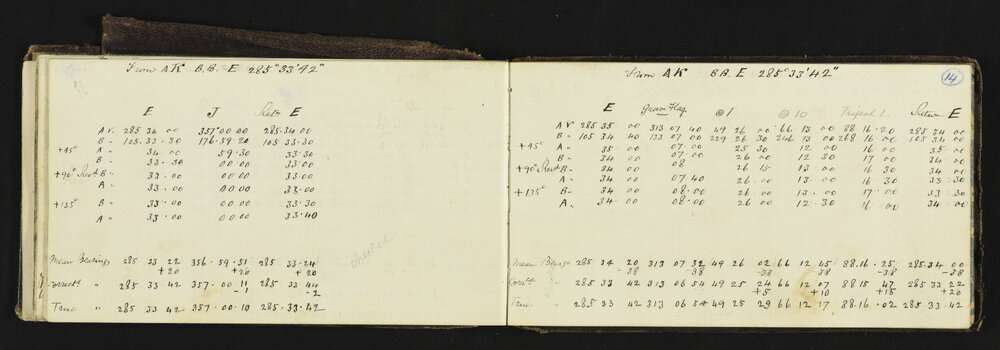 From AK B.B. E 285°33'42"
E J Retn E
A v. 285 34 00 357 00 00 285 34 00
B " 105.33.30 176.59.20 105 33.30
+45° A " 34 00 59.30 33.30
B " 33.30 00 00 33.00
+90° B " 33.00 00 00 33.00
A " 33.00 00 00 33.00
+135° B " 33.00 00 00 33.30
A " 33.00 00 00 33.40
checked
Mean Bearings 285 33 22 356.59.51 285.33.24
+20 +20 +20
Correct. " 285 33 42 357.00.11 285 33 44
-1 -2
True " 285 33 42 357.00.10 285.33.42
From AK B.B. E 285°33'42"
14
E Flag @ 1 @ 10 Tripod 1. Return E
A v 285.35.00 313 07 40 49 26 00 66 13 00 88 16.20 285 34 00
B " 105 34 40 133 07 00 229 26 30 246 13 00 268 16 00 105 34 00
+45° A " 35 00 07 00 25 30 12 00 16 00 35 00
B " 34 00 07 00 26 00 12 30 17 00 34 00
+90° B " 34 00 08 26 15 13 00 16 30 34 00
A " 34 00 07 40 26.00 13 00 16 30 33 30
+135° B " 34 00 08.00 26 00 13.00 17.00 33 30
A " 34 00 08.00 26 00 12 30 16 00 34 00
Mean Bearings 285 34 20 313 07 32 49 26 02 66 12 45 88.16.25 285.34.00
-38 -38 -38 -38 -38 -38
Correctd " 285 33 42 313 06 54 49 25 24 66 12 07 88 15 47 285 33 22
+5 +10 +15 +20
True " 285 33 42 313 06 54 49 25 29 66 12 17 88.16.02 285 33 42